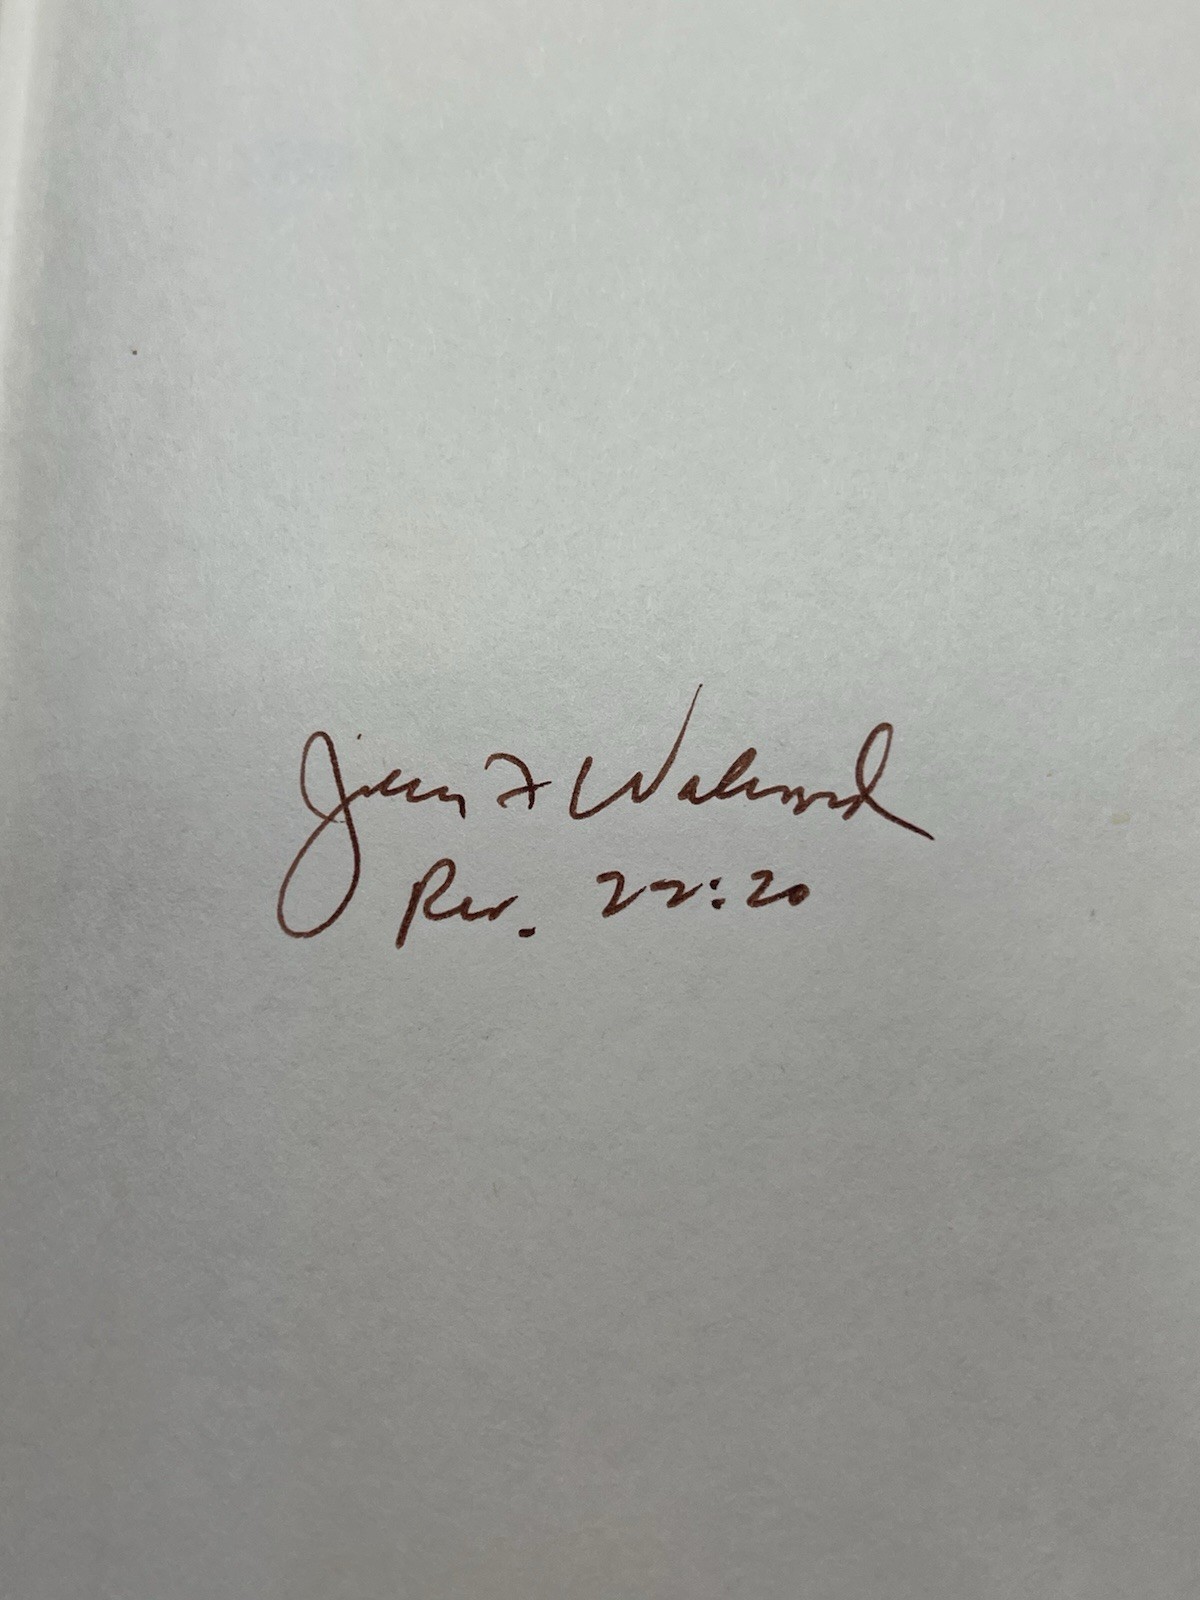 John F Walvoord
Rev. 22:20